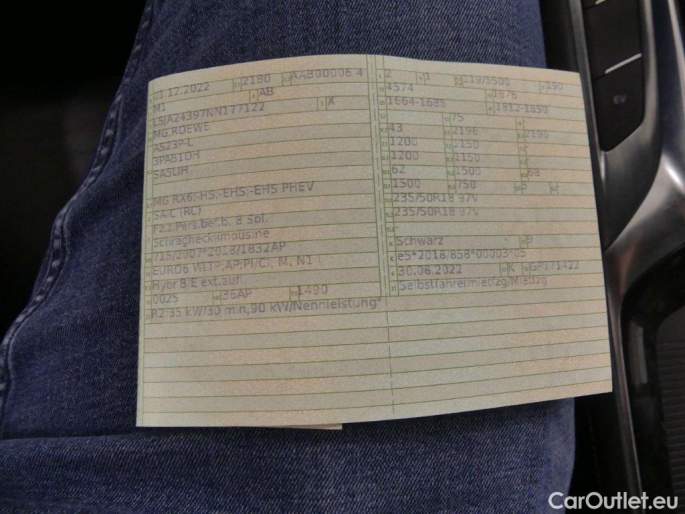 01.12.2022 2180 AAB00006 4
M1 AB
LSJA24397NN177122 X
MG,ROEWE
AS23P-L
SPAB1DH
SA5UH
MG RX6;-HS;-EHS;-EHS PHEV
SAIC (RC)
FZ.z.Pers.bef.b. 8 Spl.
Schräghecklimousine
715/2007*2018/1832AP
EURO6 WLTP,AP;PI/CI, M, N1 I
Hybr.B/E ext.aufl
0025 36AP 1490
P.2 35 kW/30 min,90 kW/Nennleistung*
2 1 119/5500 190
4574 1876
1664-1685 1812-1850
75
43 2196 2190
1200 1150
1200 1150
62 1500 68
1500 750 P
235/50R18 97V
235/50R18 97V
Schwarz P
e5*2018/858*00003*05
30.06.2022 K GP171422
Selbstfahrermietfzg/Mietfzg
CarOutlet.eu